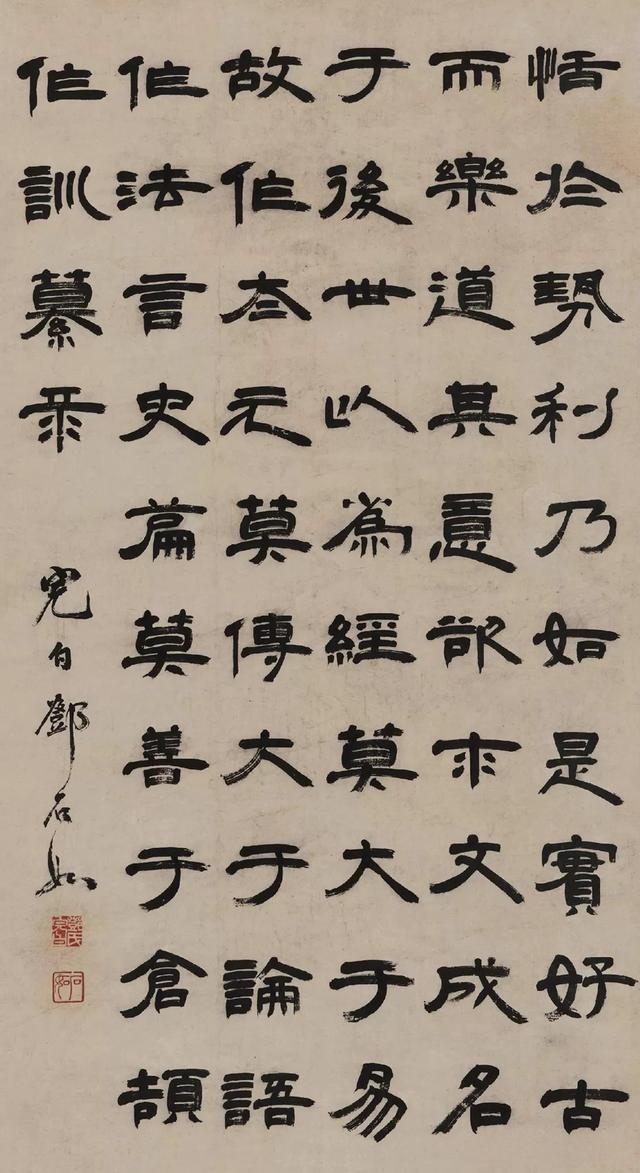 恬於勢利乃如是實好古
而樂道其意欲求文成名
于後世以為經莫大于易
故作太元莫傳大于論語
作法言史篇莫善于倉頡
作訓纂
完白鄧石如
鄧氏完白
石如